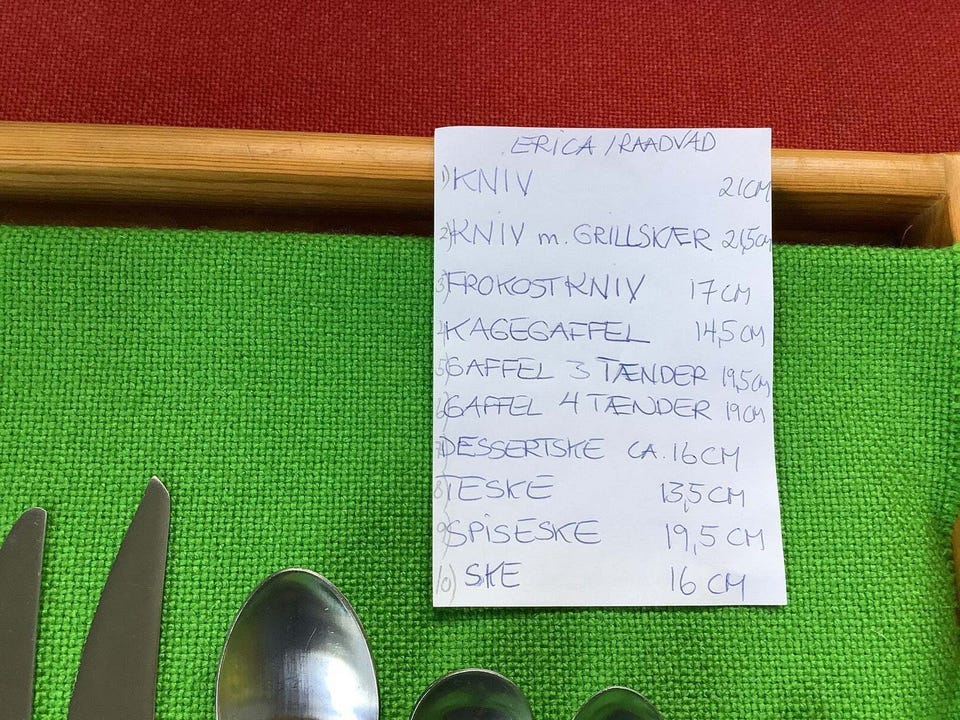 ERICA / RAADVAD
1) KNIV 21 CM
2) KNIV m. GRILLSKÆR 21,5 CM
3) FROKOSTKNIV 17 CM
4) KAGEGAFFEL 14,5 CM
5) GAFFEL 3 TÆNDER 19,5 CM
6) GAFFEL 4 TÆNDER 19 CM
7) DESSERTSKE CA. 16 CM
8) TESKE 13,5 CM
9) SPISESKE 19,5 CM
10) SKE 16 CM